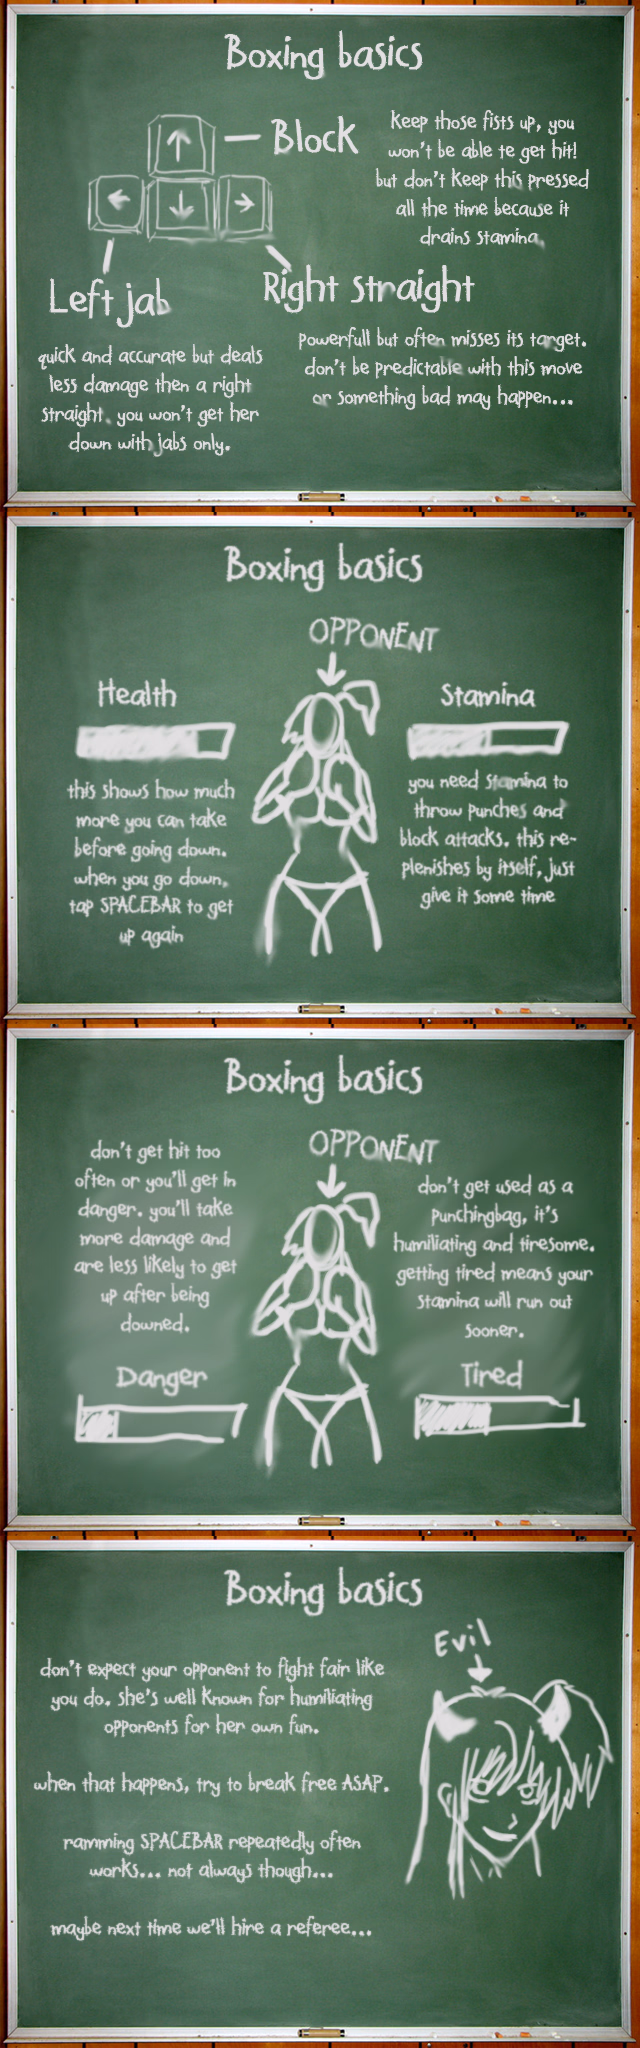 Boxing basics
Block
Keep those fists up, you
won't be able te get hit!
but don't keep this pressed
all the time because it
drains stamina.
Left jab
quick and accurate but deals
less damage then a right
straight. you won't get her
down with jabs only.
Right straight
powerfull but often misses its target.
don't be predictable with this move
or something bad may happen...
Boxing basics
OPPONENT
Health
this shows how much
more you can take
before going down.
when you go down,
tap SPACEBAR to get
up again
Stamina
you need stamina to
throw punches and
block attacks. this re-
plenishes by itself, just
give it some time
Boxing basics
OPPONENT
don't get hit too
often or you'll get in
danger. you'll take
more damage and
are less likely to get
up after being
downed.
Danger
don't get used as a
punchingbag, it's
humiliating and tiresome.
getting tired means your
stamina will run out
sooner.
Tired
Boxing basics
Evil
don't expect your opponent to fight fair like
you do. she's well known for humiliating
opponents for her own fun.
when that happens, try to break free ASAP.
ramming SPACEBAR repeatedly often
works... not always though...
maybe next time we'll hire a referee...